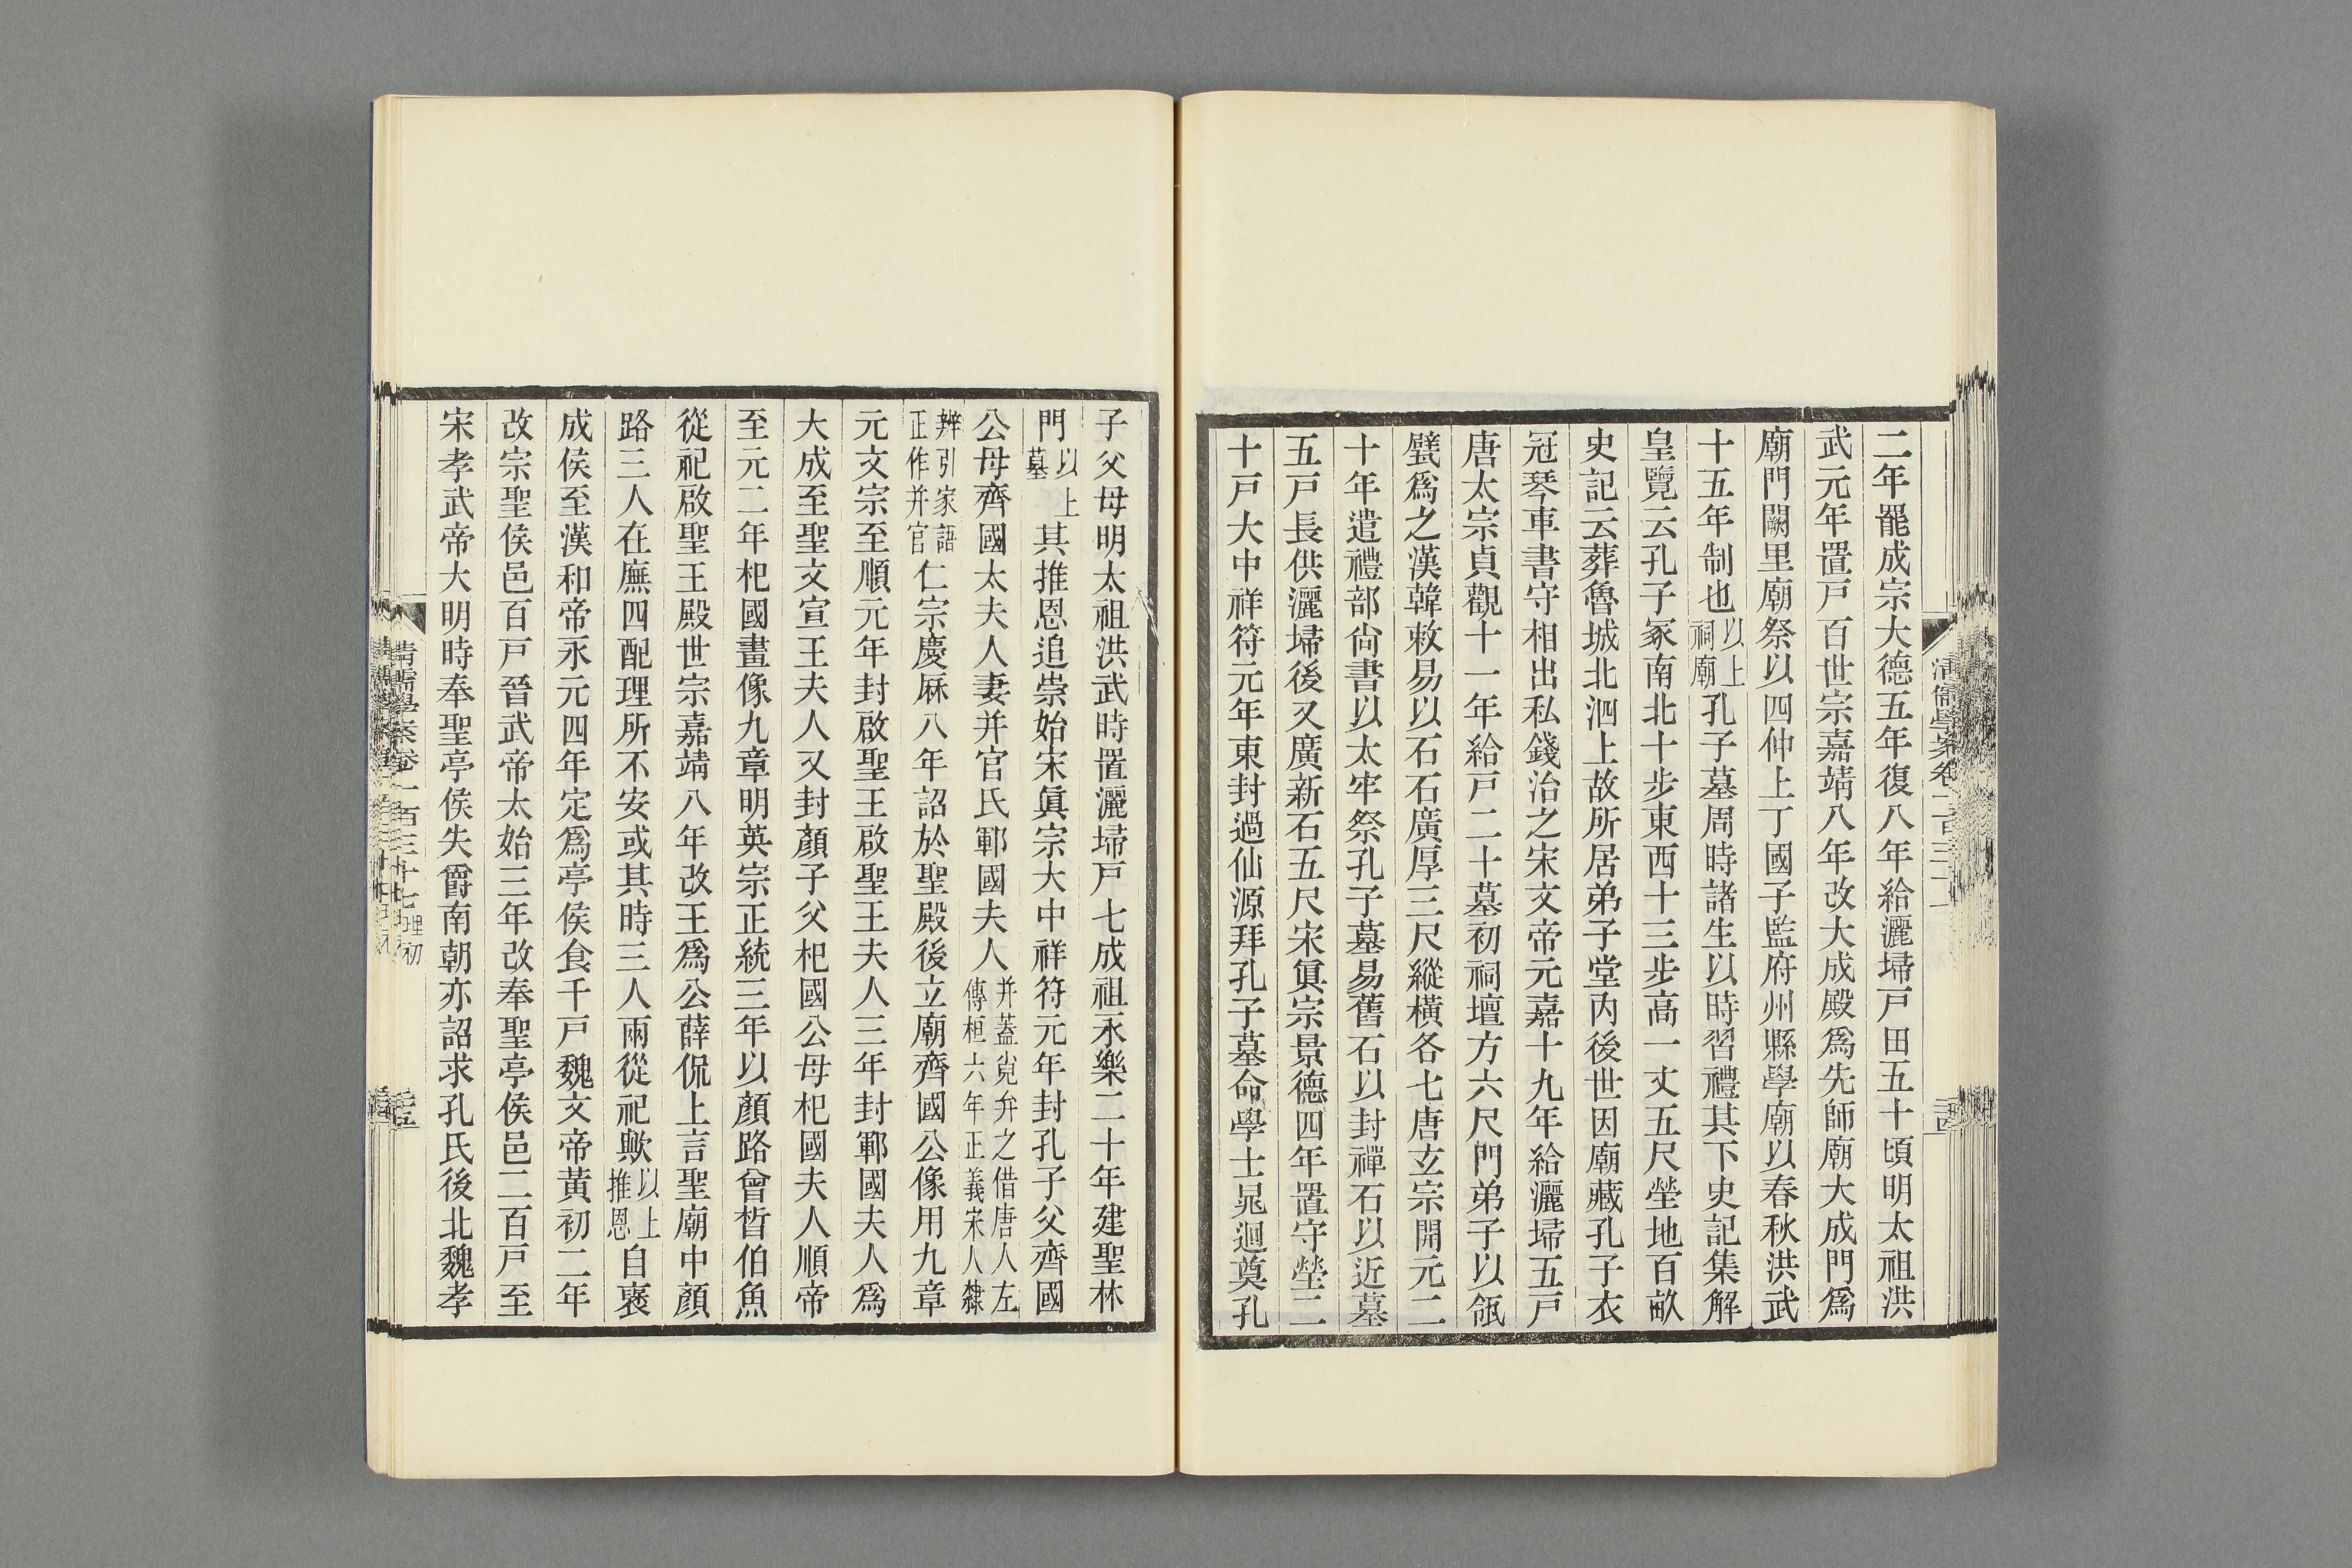 二年罷成宗大德五年復八年給灑埽戸田五十頃明太祖洪
武元年置戸百世宗嘉靖八年改大成殿爲先師廟大成門爲
廟門闕里廟祭以四仲上丁國子監府州縣學廟以春秋洪武
十五年制也以上祠廟孔子墓周時諸生以時習禮其下史記集解
皇覽云孔子冢南北十步東西十三步高一丈五尺塋地百畝
史記云葬魯城北泗上故所居弟子堂內後世因廟藏孔子衣
冠琴車書守相出私錢治之宋文帝元嘉十九年給灑埽五戸
唐太宗貞觀十一年給戸二十墓初祠壇方六尺門弟子以瓴
甓爲之漢韓敕易以石石廣厚三尺縱橫各七唐玄宗開元二
十年遣禮部尙書以太牢祭孔子墓易舊石以封禪石以近墓
五戸長供灑埽後又廣新石五尺宋眞宗景德四年置守塋二
十戸大中祥符元年東封過仙源拜孔子墓命學士晁迥奠孔
子父母明太祖洪武時置灑埽戸七成祖永樂二十年建聖林
門以上墓其推恩追崇始宋眞宗大中祥符元年封孔子父齊國
公母齊國太夫人妻并官氏鄆國夫人并蓋㒵弁之借唐人左傳桓六年正義宋人隸
辨引家語正作并官仁宗慶厤八年詔於聖殿後立廟齊國公像用九章
元文宗至順元年封啟聖王啟聖王夫人三年封鄆國夫人爲
大成至聖文宣王夫人又封顏子父杞國公母杞國夫人順帝
至元二年杞國畫像九章明英宗正統三年以顏路曾晳伯魚
從祀啟聖王殿世宗嘉靖八年改王爲公薛侃上言聖廟中顏
路三人在廡四配理所不安或其時三人兩從祀歟以上推恩自褒
成侯至漢和帝永元四年定爲亭侯食千戸魏文帝黃初二年
改宗聖侯邑百戸晉武帝太始三年改奉聖亭侯邑二百戸至
宋孝武帝大明時奉聖亭侯失爵南朝亦詔求孔氏後北魏孝
清儒學案卷一百三十七理初